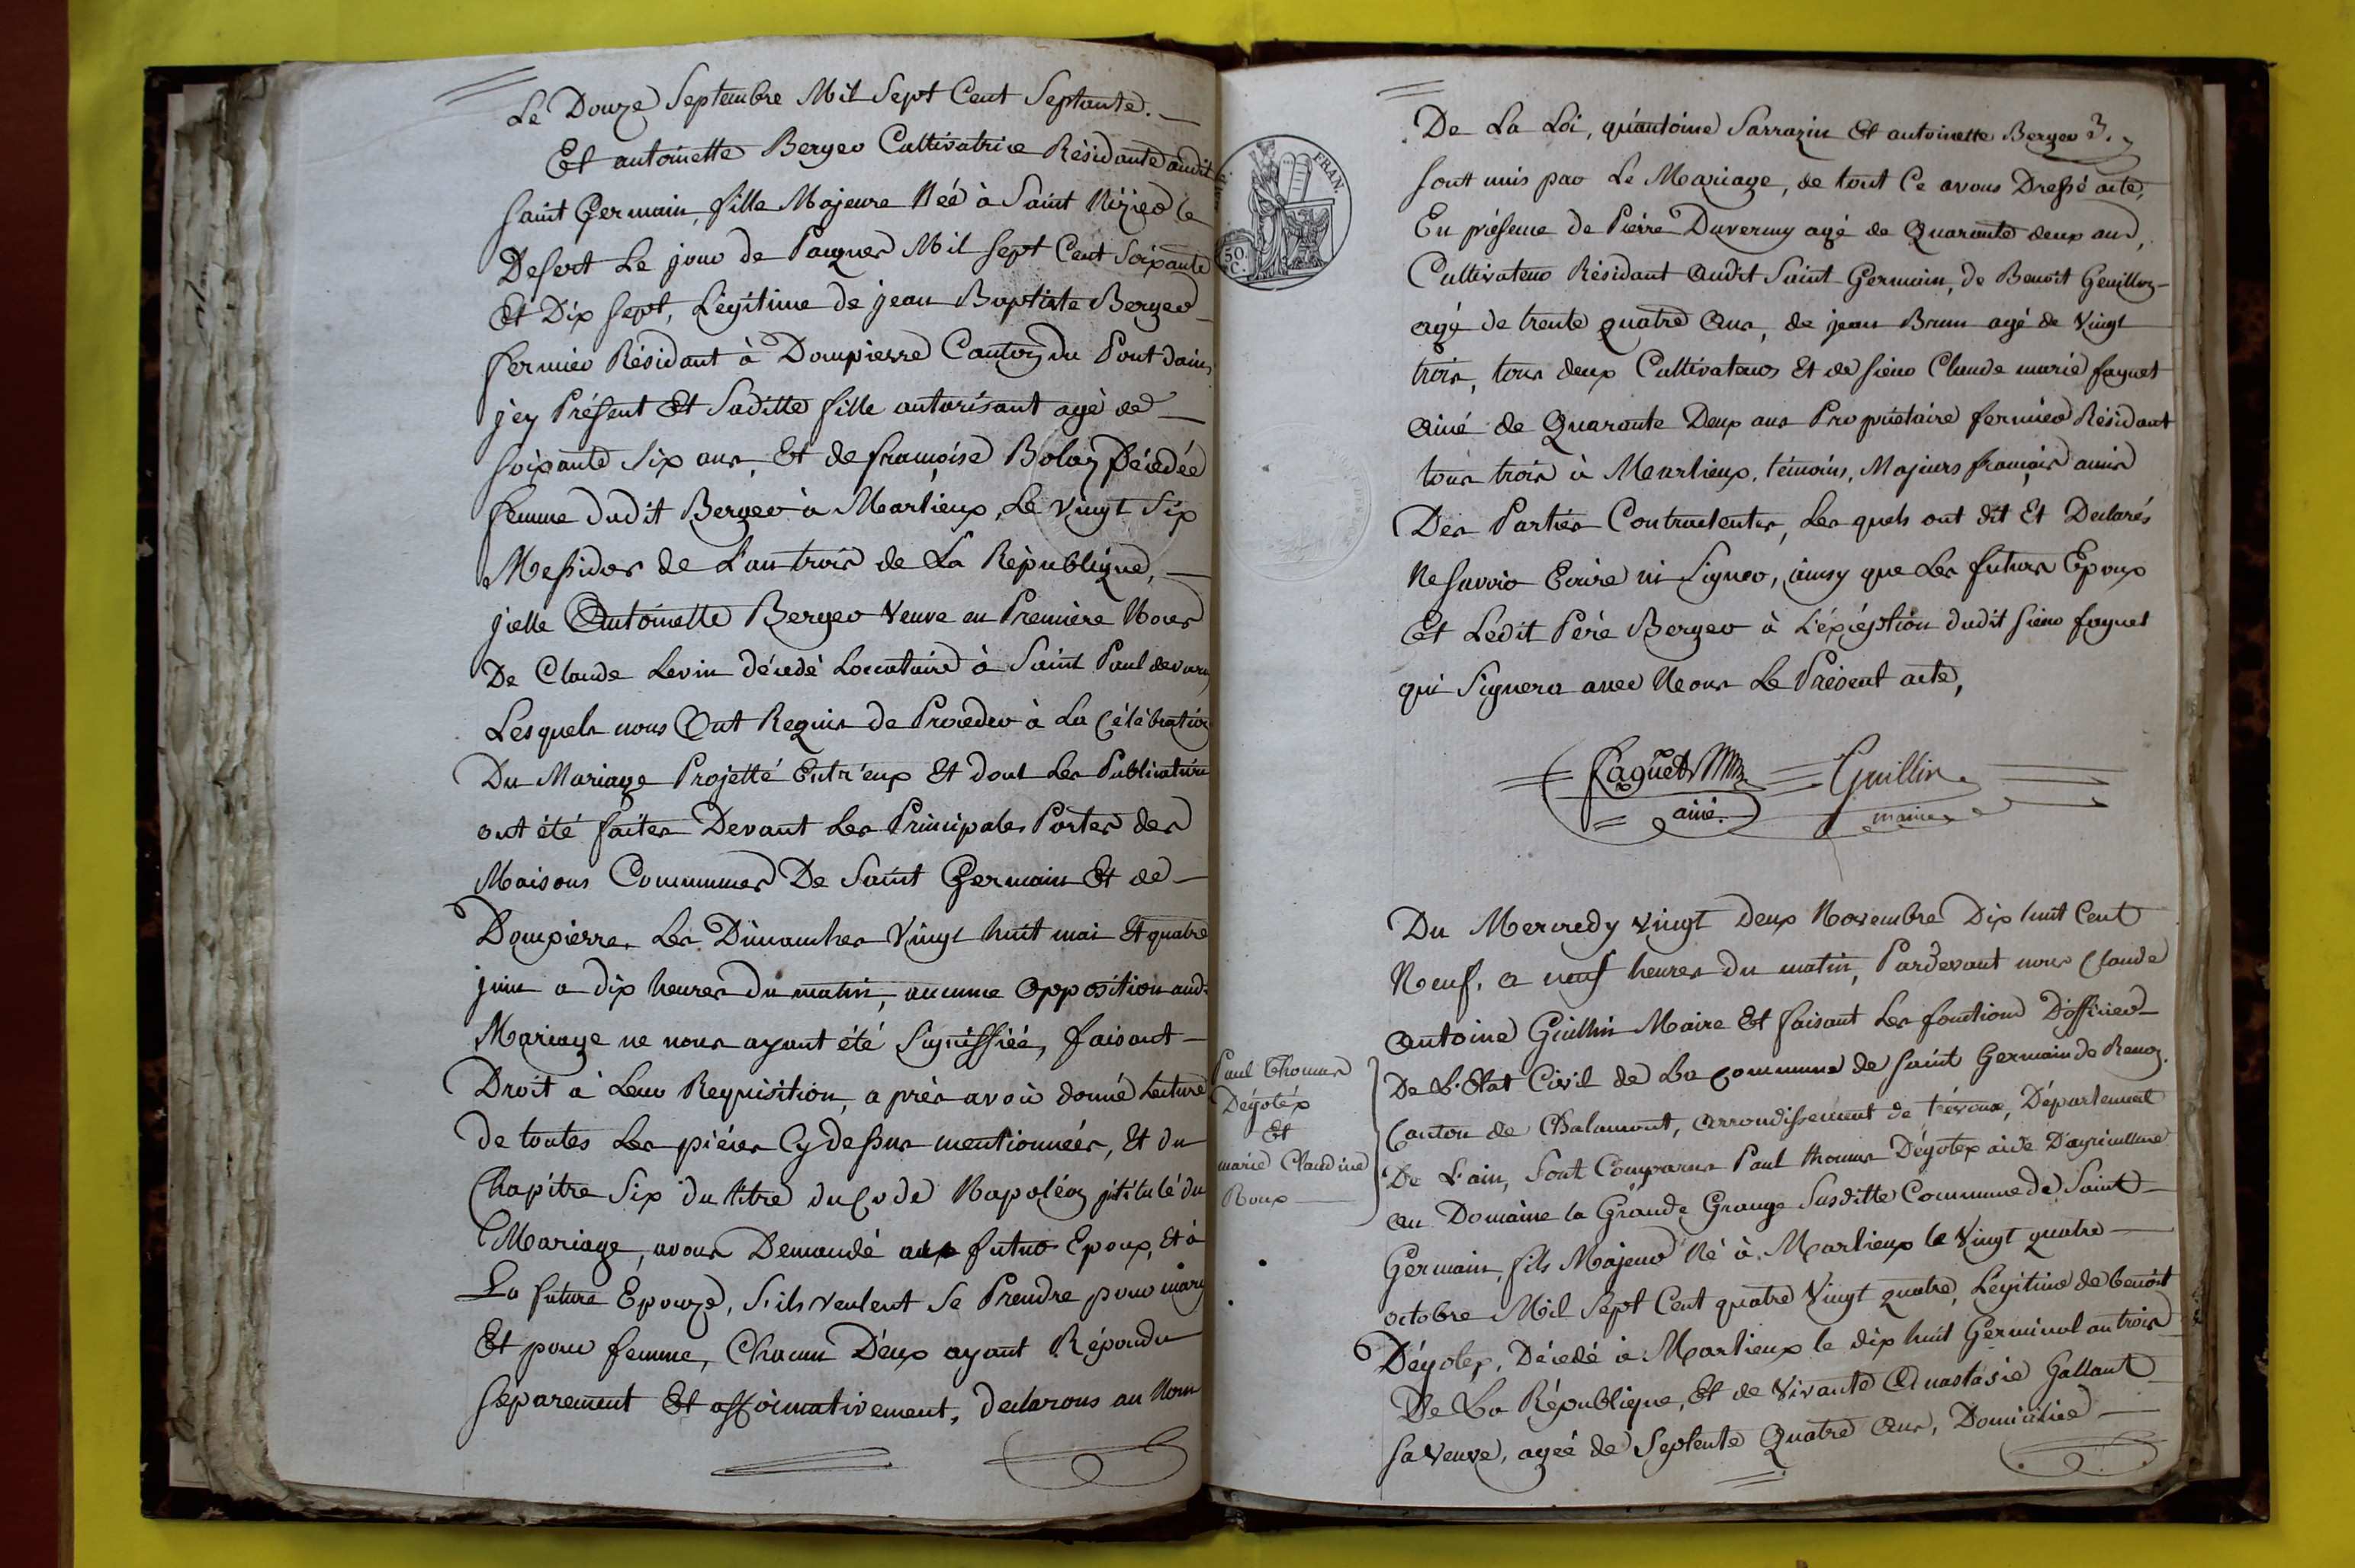 Le Douze Septembre Mil Sept Cent Septante.
Et antoinette Berger Cultivatrice Résidante audit
Saint Germain, fille Majeure Neé à Saint Nizier le
Desert Le jour de Paques Mil Sept Cent Soixante
Et Dix Sept, Légitime de jean Baptiste Berger
fermier Résidant à Dompierre Canton du Pont dain,
jcy Présent Et Saditte fille autorisant agé de
Soixante Six ans, Et de françoise Bolon Décedée
femme dudit Berger à Marlieux, Le Vingt Six
Messidor de L'an trois de La République,
jcelle Antoinette Berger Veuve en Première Noces
De Claude Levin décedé Locataire à Saint Paul devarax
Lesquels nous Ont Requis de Proceder à La Célébration
Du Mariage Projetté Entr'eux Et dont Les Publications
ont été faites Devant Les Principales Portes des
Maisons Communes De Saint Germain Et de
Dompierre Les Dimanches Vingt huit mai Et quatre
juin a dix heures du matin, aucune Opposition aud.
Mariage ne nous ayant été Signiffiéé, faisant
Droit à Leur Requisition, a près avoir donné Lecture
de toutes Les pièces Cy dessus mentionnées, Et du
Chapitre Six du titre du Code Napoléon jntitulé du
Mariage, avons Demandé aux futur Epoux, Et à
La future Epouze, S'ils veulent Se Prendre pour mary
Et pour femme, Chacun D'eux ayant Répondu
Separement Et affirmativement, declarons au Nom
FRAN.
50.
C.
De La Loi, qu'antoine Sarrazin Et antoinette Berger
Sont unis par Le Mariage, de tout Ce avons Dressé acte,
En présence de Pierre Duverny agé de Quarante deux ans,
Cultivateur Résidant Audit Saint Germain, de Benoit
agé de trente quatre Ans, de jean Brun agé de Vingt
trois, tous deux Cultivateurs Et de Sieur Claude marie faguet
Ainé de Quarante Deux ans Propriétaire fermier Résidant
tous trois à Marlieux, témoins, Majeurs français amis
Des Parties Contractantes, Les quels ont dit Et Declarés
Ne Savoir Ecrire ni Signer, ainsy que Les futurs Epoux
Et Ledit Père Berger à L'éxception dudit Sieur faguet
qui Signera avec Nous Le Présent acte,
Faguet Guillin
ainé. maire
Du Mercredy Vingt deux Novembre Dix huit Cent
Neuf, a neuf heures du matin, Pardevant nous Claude
Antoine Guillin Maire Et faisant Les fonctions D'officier
De L'Etat Civil de La Commune de Saint Germain de Renon
Canton de Chalamont, arrondissement de trévoux, Département
De L'ain, Sont Comparus Paul thomas Dégotex aide D'agriculture
au Domaine la Grande Grange Susditte Commune de Saint
Germain, fils Majeur Né à Marlieux le Vingt quatre
octobre Mil Sept Cent quatre Vingt quatre, Légitime de benoit
Dégotex, Décedé à Marlieux le dix huit Germinal an trois
De La République, Et de Vivante Anastasie Gallant
Sa Veuve, ageé de Septente Quatre Ans, Domiciliée
Paul Thomas
Dégotéx
Et
marie Claudine
Roux